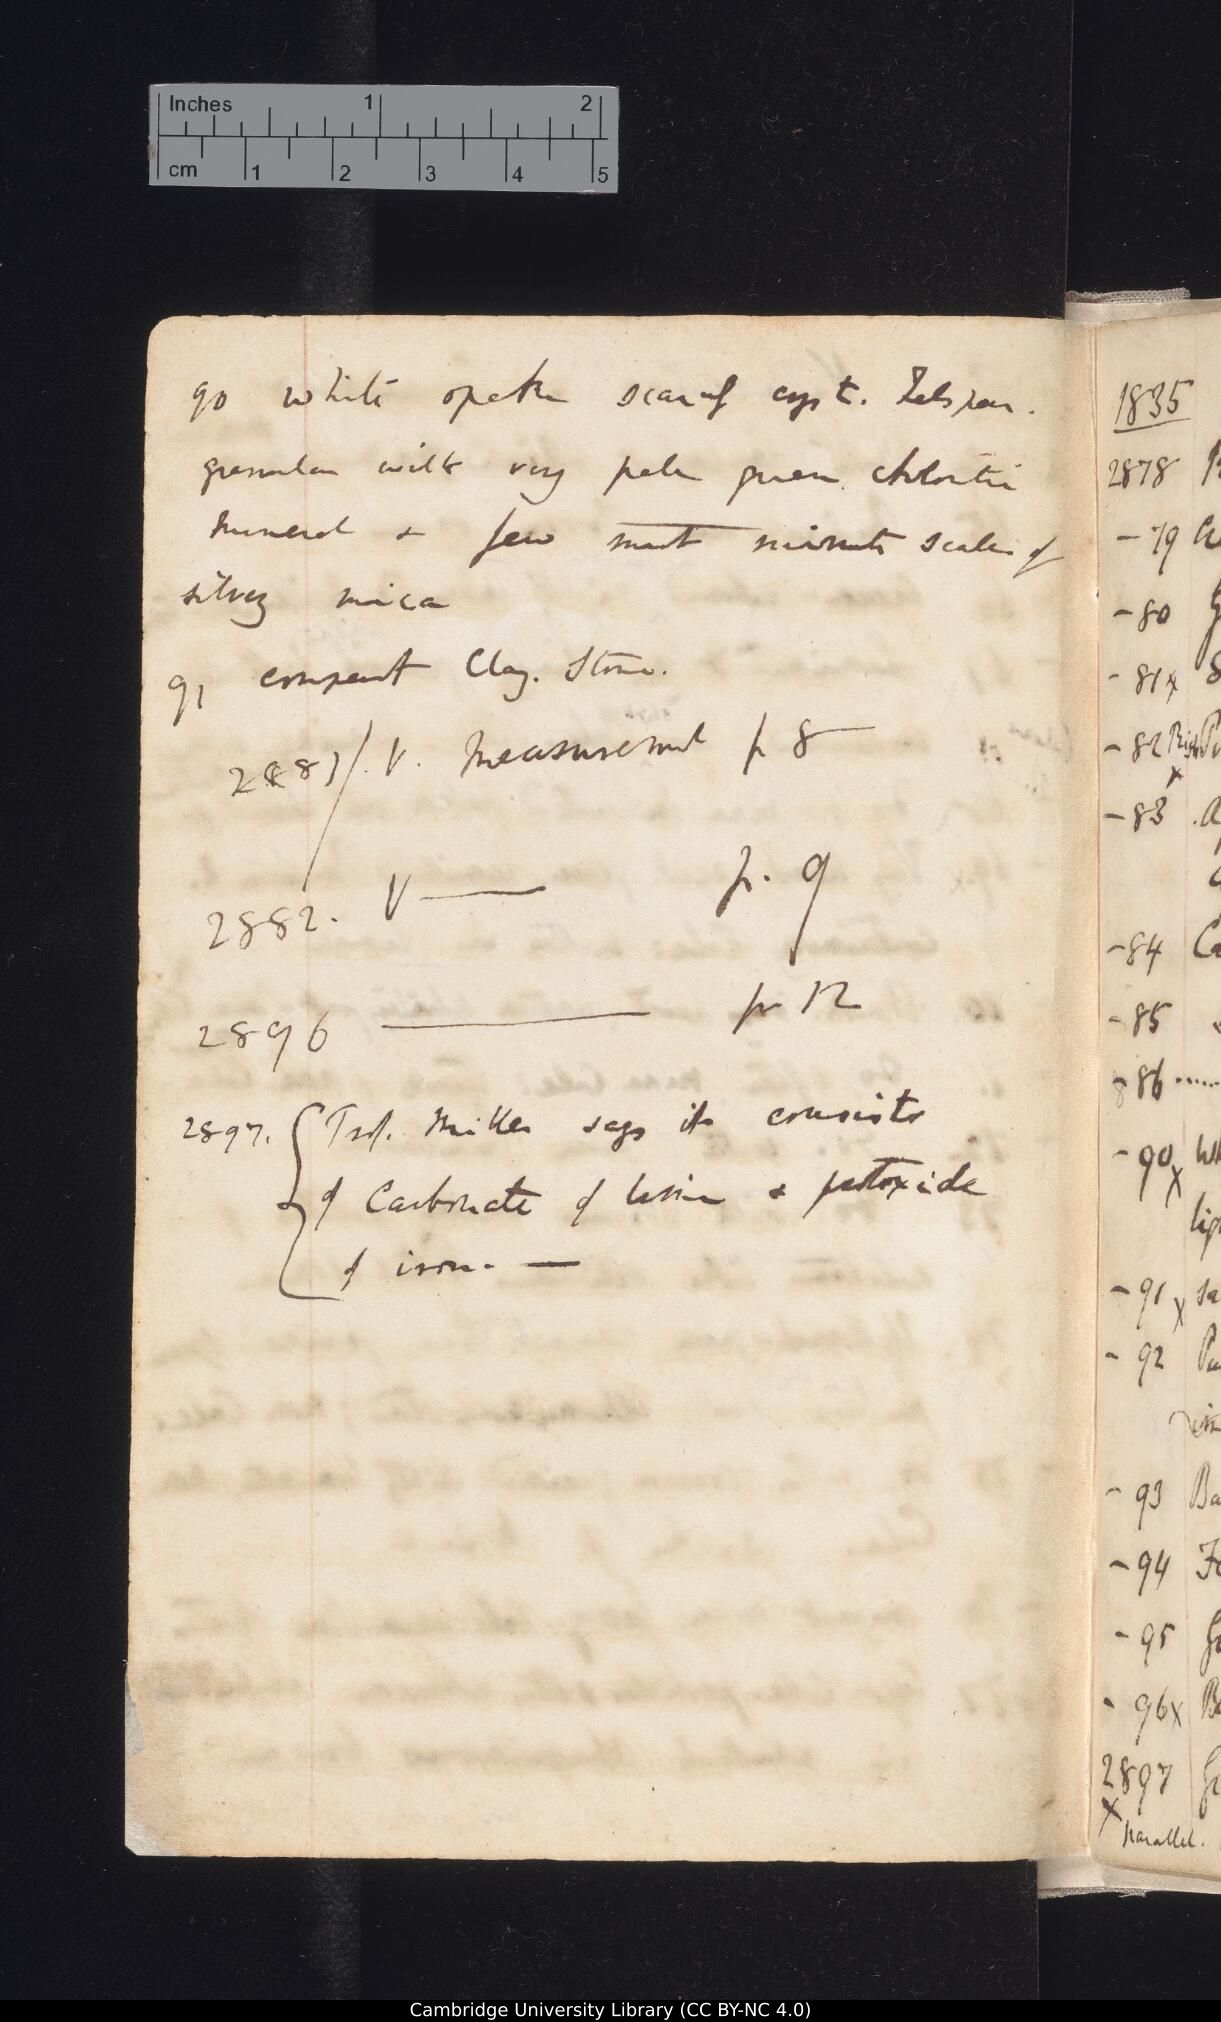 Inches 1 2
cm 1 2 3 4 5
90 white opake scarcely cryst. Felspar.
granular with very pale green chloritic
mineral & few most minute scales of
silvery mica
91 compact Clay. Stone.
2881/. V. Measurement p 8
2882. V — p. 9
2896 — p 12
2897. Prof. Miller says it consists
of Carbonate of lime & protoxide
of iron. —
1835
2878
- 79
- 80
- 81 x
- 82
x
- 83
- 84
- 85
- 86 .....
- 90 x Wh
lig
- 91 x sa
- 92
- 93 Ba
- 94
- 95
- 96 x
2897
x
parallel.
Cambridge University Library (CC BY-NC 4.0)